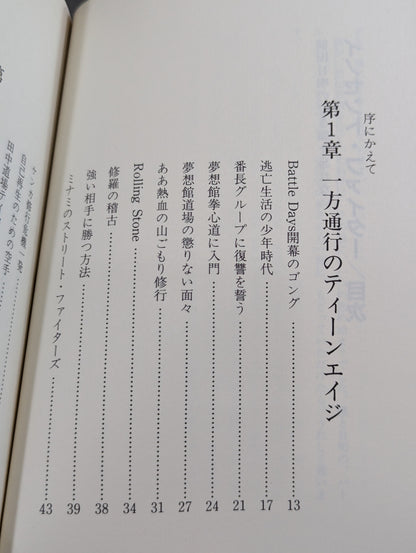 序にかえて
第1章 一方通行のティーンエイジ
Battle Days開幕のゴング……13
逃亡生活の少年時代……17
番長グループに復讐を誓う……21
夢想館拳心道に入門……24
夢想館道場の懲りない面々……27
ああ熱血の山ごもり修行……31
Rolling Stone……34
修羅の稽古……38
強い相手に勝つ方法……39
ミナミのストリート・ファイターズ……43
自己再生のための空手